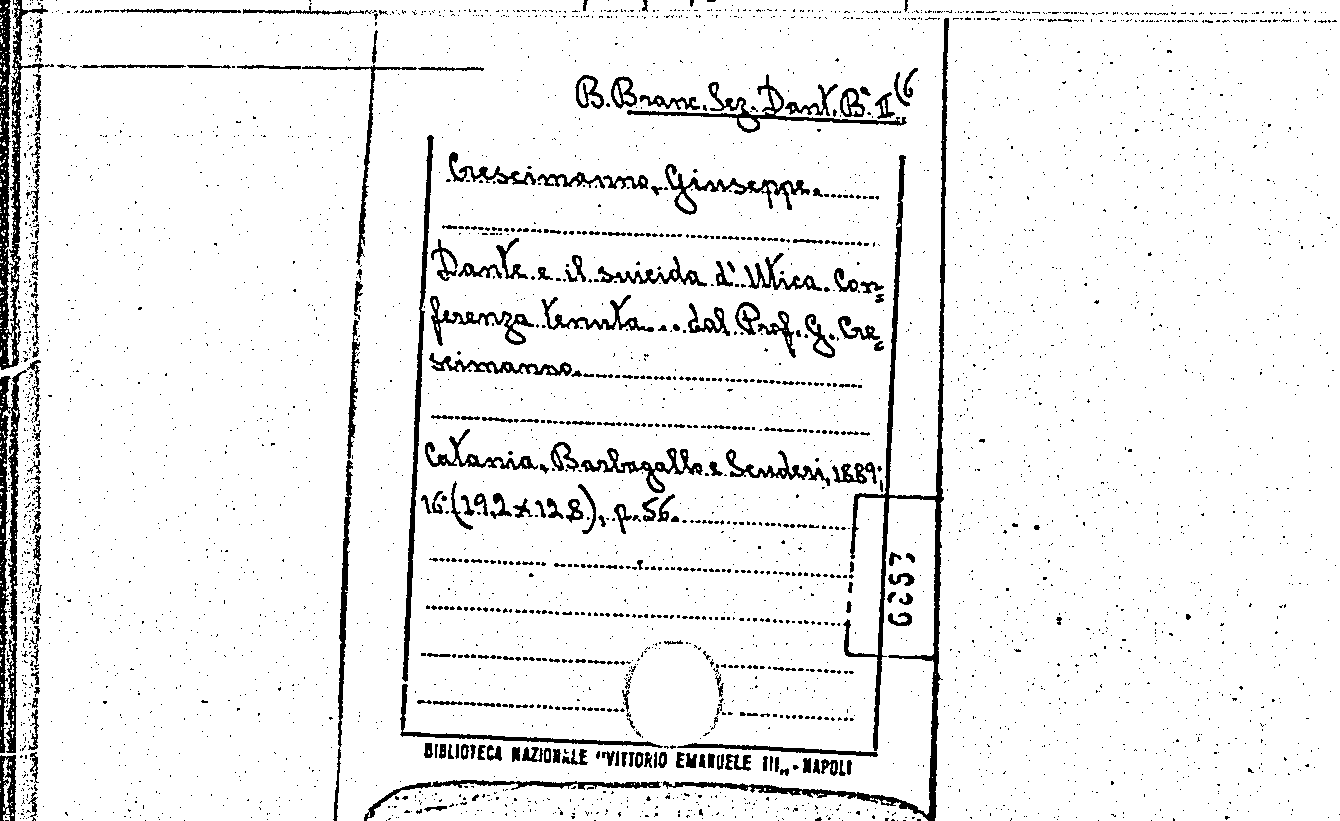 B. Branc. Sez. Dant. Bª II (6
Crescimanno, Giuseppe.
Dante e il suicida d' Utica. Con=
ferenza tenuta... dal Prof. G. Cre=
scimanno.
Catania, Barbagallo e Scuderi, 1889;
16° (19,2 x 12,8), p. 56.
BIBLIOTECA NAZIONALE "VITTORIO EMANUELE III„ - NAPOLI